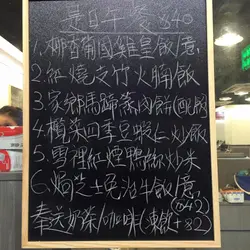 是日午餐 $40
1.椰香葡國雞皇飯(意)
2.紅燒支竹火腩飯
3.家鄉馬蹄蒸肉餅(配飯)
4.欖菜四季豆蝦仁炒飯
5.雪裡紅煙鴨絲炒米
6.焗芝士免治牛飯(意)($42)
奉送奶茶/咖啡(凍飲+$2)